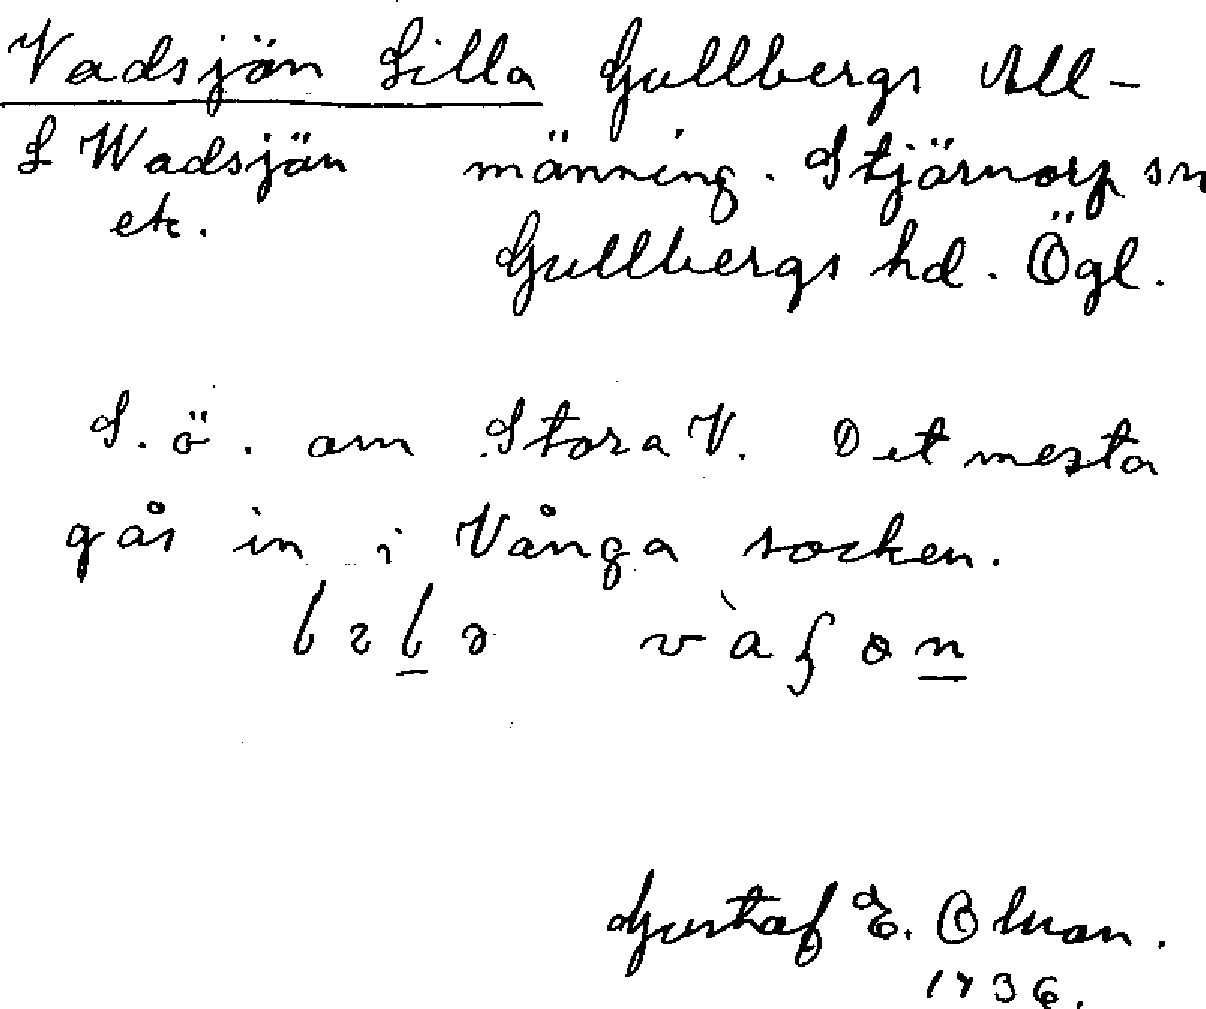 Vadsjön Lilla Gullbergs All-
L Wadsjön männing. Stjärnorp sn
etc. Gullbergs hd. Ögl.
S. ö. om Stora V. Det mesta
går in i Vånga socken.
Gustaf E. Olsson.
1936.